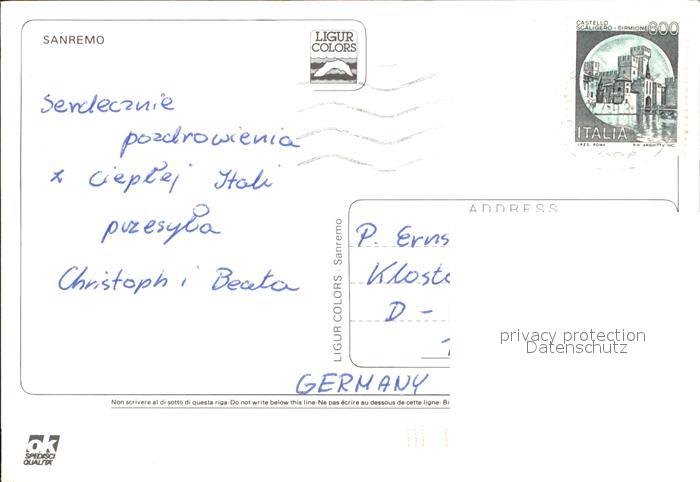 SANREMO
LIGUR
COLORS
CASTELLO
SCALIGERO - SIRMIONE
600
ITALIA
I.P.Z.S. ROMA
Serdecznie
pozdrowienia
z ciepłej Itali
przesyła
Christoph i Beata
LIGUR COLORS - Sanremo
ADDRESS
P. Erns
Klost
D -
privacy protection
Datenschutz
GERMANY
Non scrivere al di sotto di questa riga-Do not write below this line-Ne pas écrire au dessous de cette ligne-Bi
ok
SPEDISCI
QUALITÀ